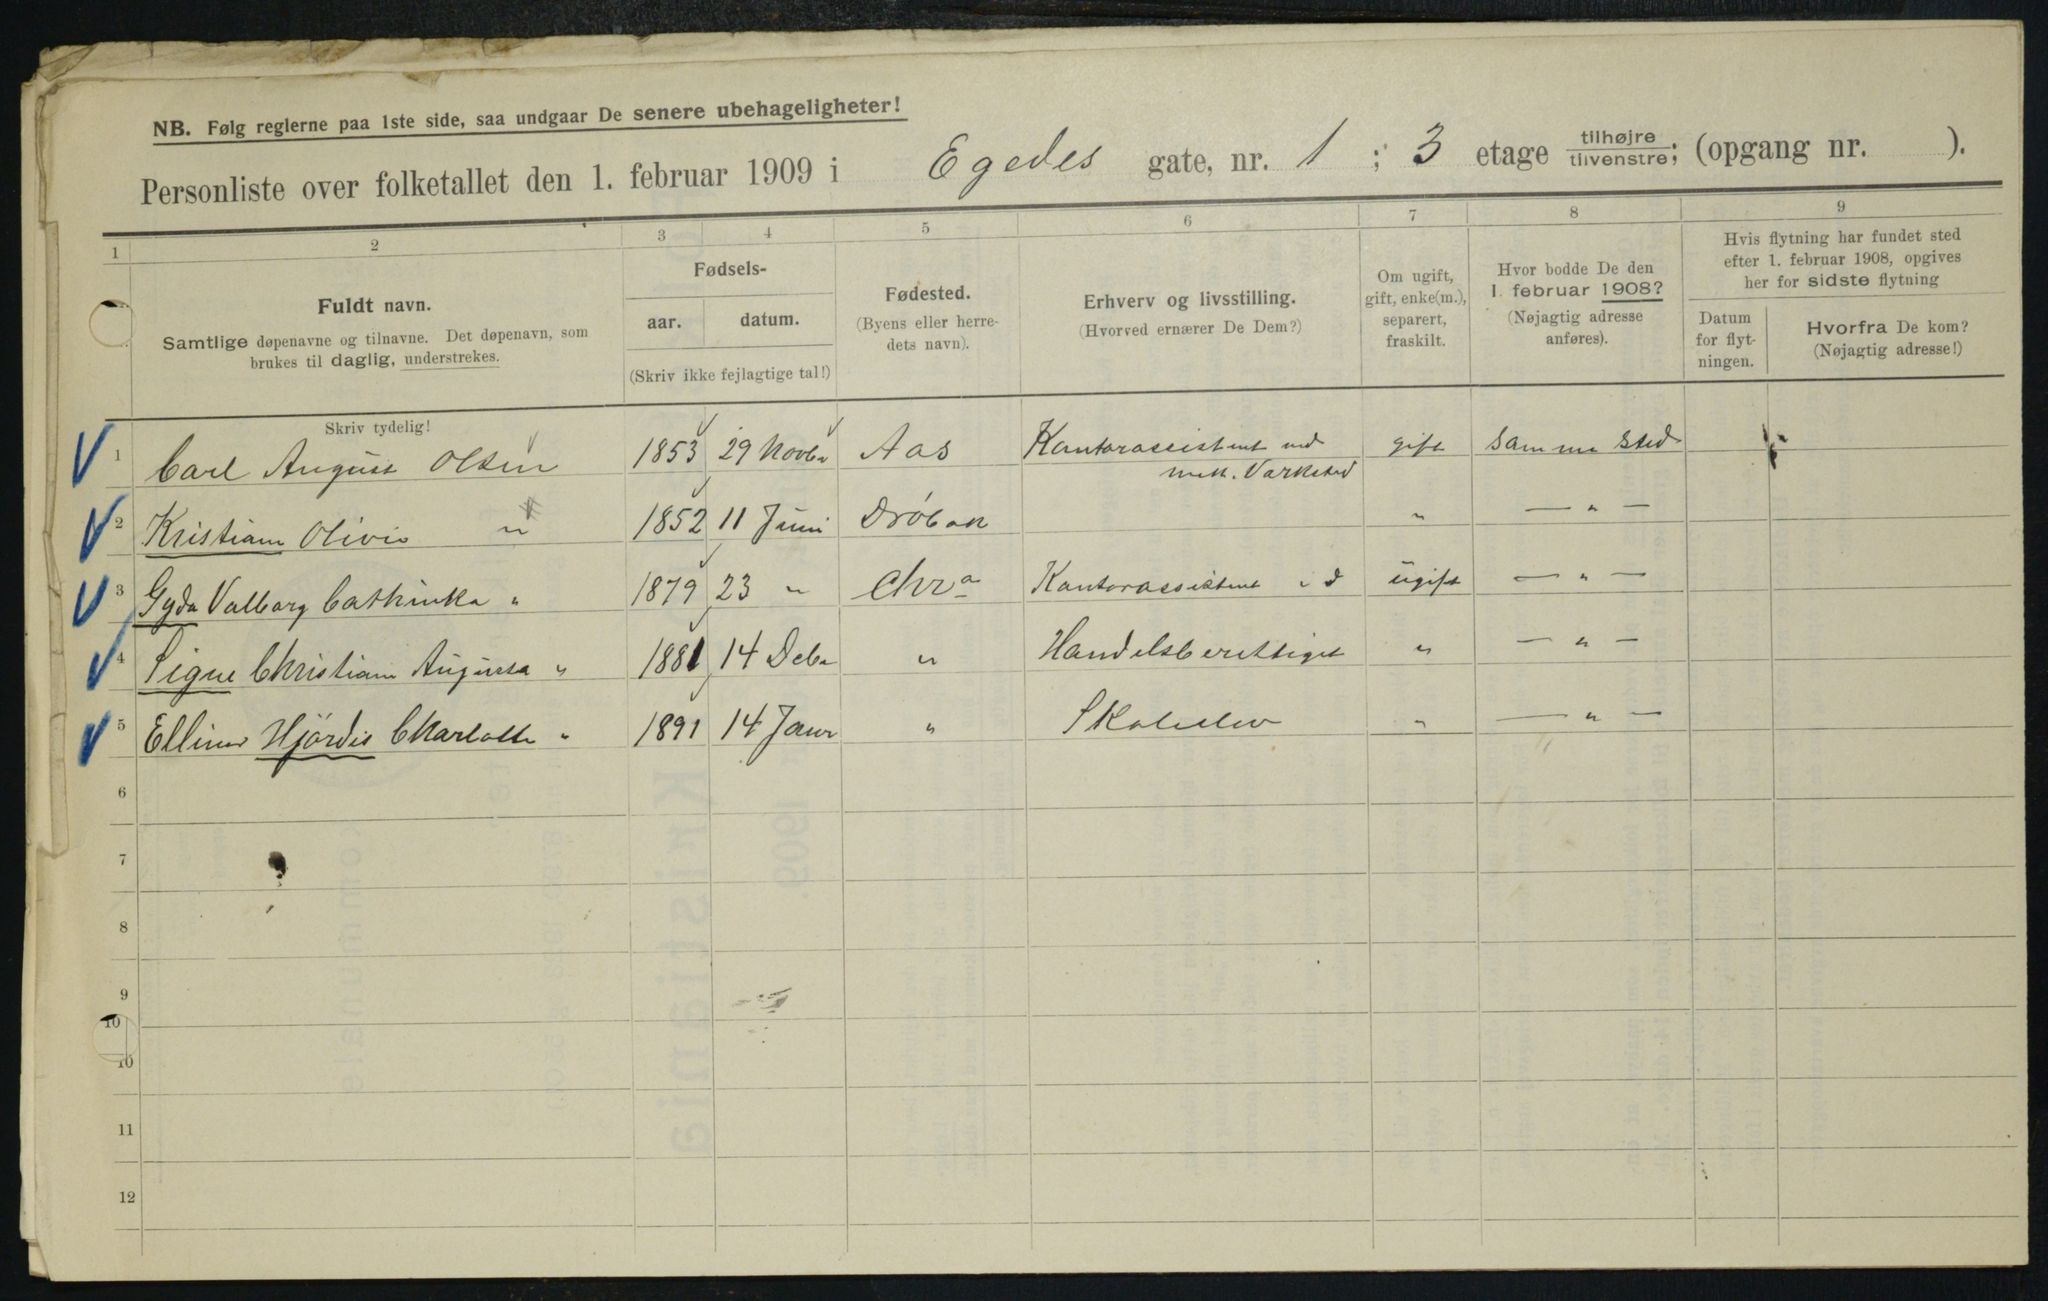 NB. Følg reglerne paa 1ste side, saa undgaar De senere ubehageligheter!
Personliste over folketallet den 1. februar 1909 i Egedes gate, nr. 1 ; 3 etage tilhøjre/tilvenstre; (opgang nr. ).
1 2 3 4 5 6 7 8 9
Fuldt navn.
Samtlige døpenavne og tilnavne. Det døpenavn, som
brukes til daglig, understrekes.
Fødsels-
aar. datum.
(Skriv ikke fejlagtige tal!)
Fødested.
(Byens eller herre-
dets navn).
Erhverv og livsstilling.
(Hvorved ernærer De Dem?)
Om ugift,
gift, enke(m.),
separert,
fraskilt.
Hvor bodde De den
1. februar 1908?
(Nøjagtig adresse
anføres).
Hvis flytning har fundet sted
efter 1. februar 1908, opgives
her for sidste flytning
Datum
for flyt-
ningen.
Hvorfra De kom?
(Nøjagtig adresse!)
Skriv tydelig!
1 Carl August Olsen 1853 29 Novbr Aas Kontorassistent ved gift samme sted
mek. Værksted
2 Kristiane Olivia " 1852 11 Juni Drøbak " — " —
3 Gyda Valborg Cathinka " 1879 23 " Chr a Kontorassistent ugift — " —
4 Signe Christiane Augusta " 1881 14 Debr " Handelsberettiget " — " —
5 Ellinor Hjördis Charlotte " 1891 14 Janr " Skoleelev " — " —
6
7
8
9
10
10
11
12